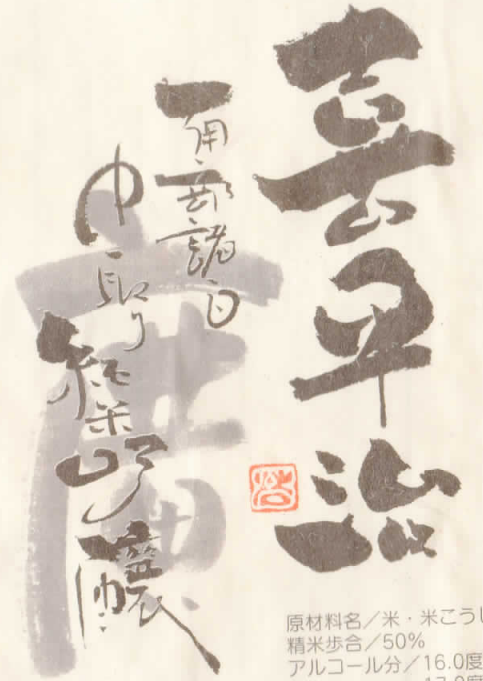 喜平治
南部諸白
中取り
純米吟醸
廣
原材料名／米・米こうじ
精米歩合／50%
アルコール分／16.0度
17.0度